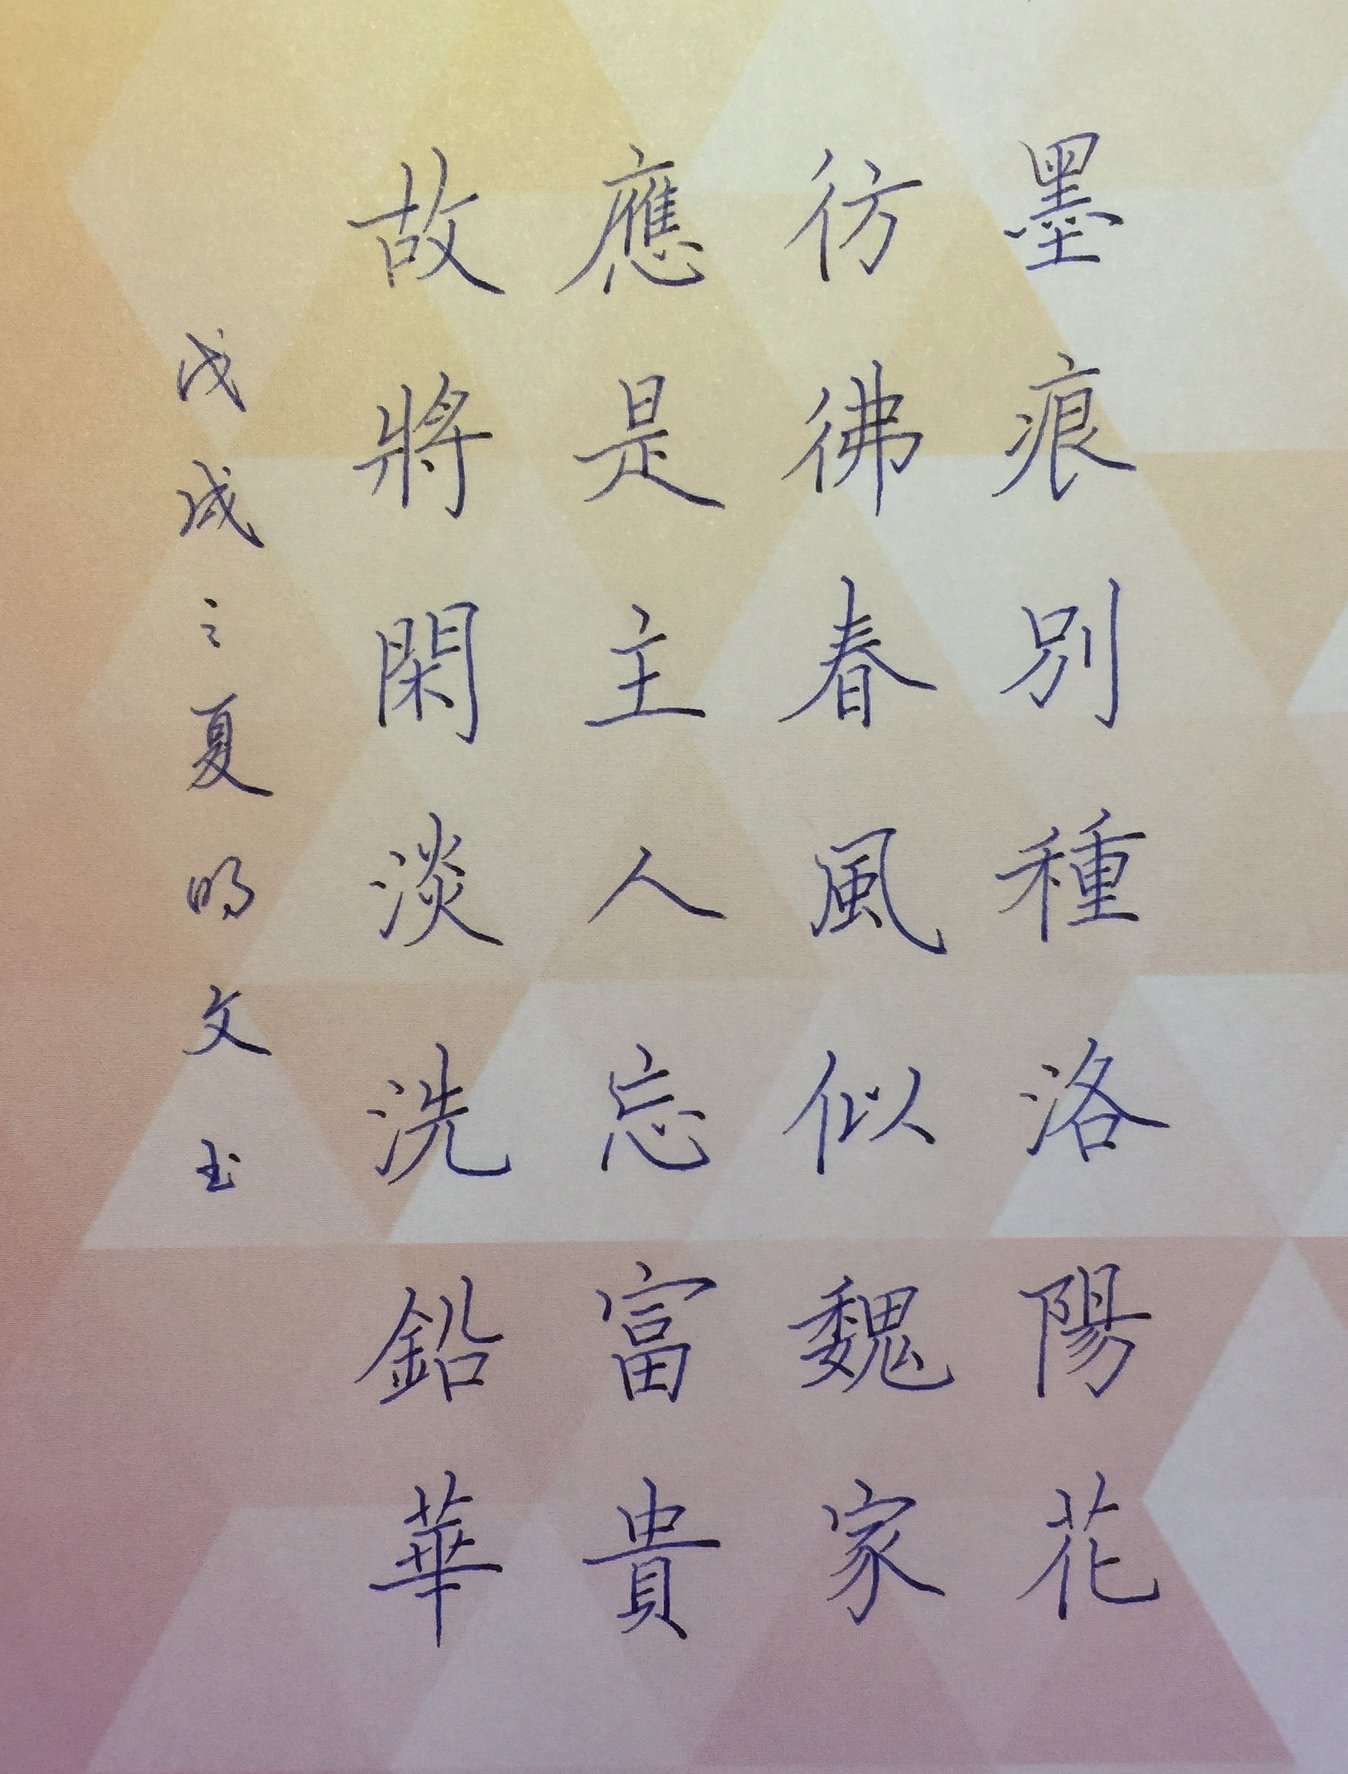 墨痕別種洛陽花
彷彿春風似魏家
應是主人忘富貴
故將閑淡洗鉛華
戊戌之夏明文书